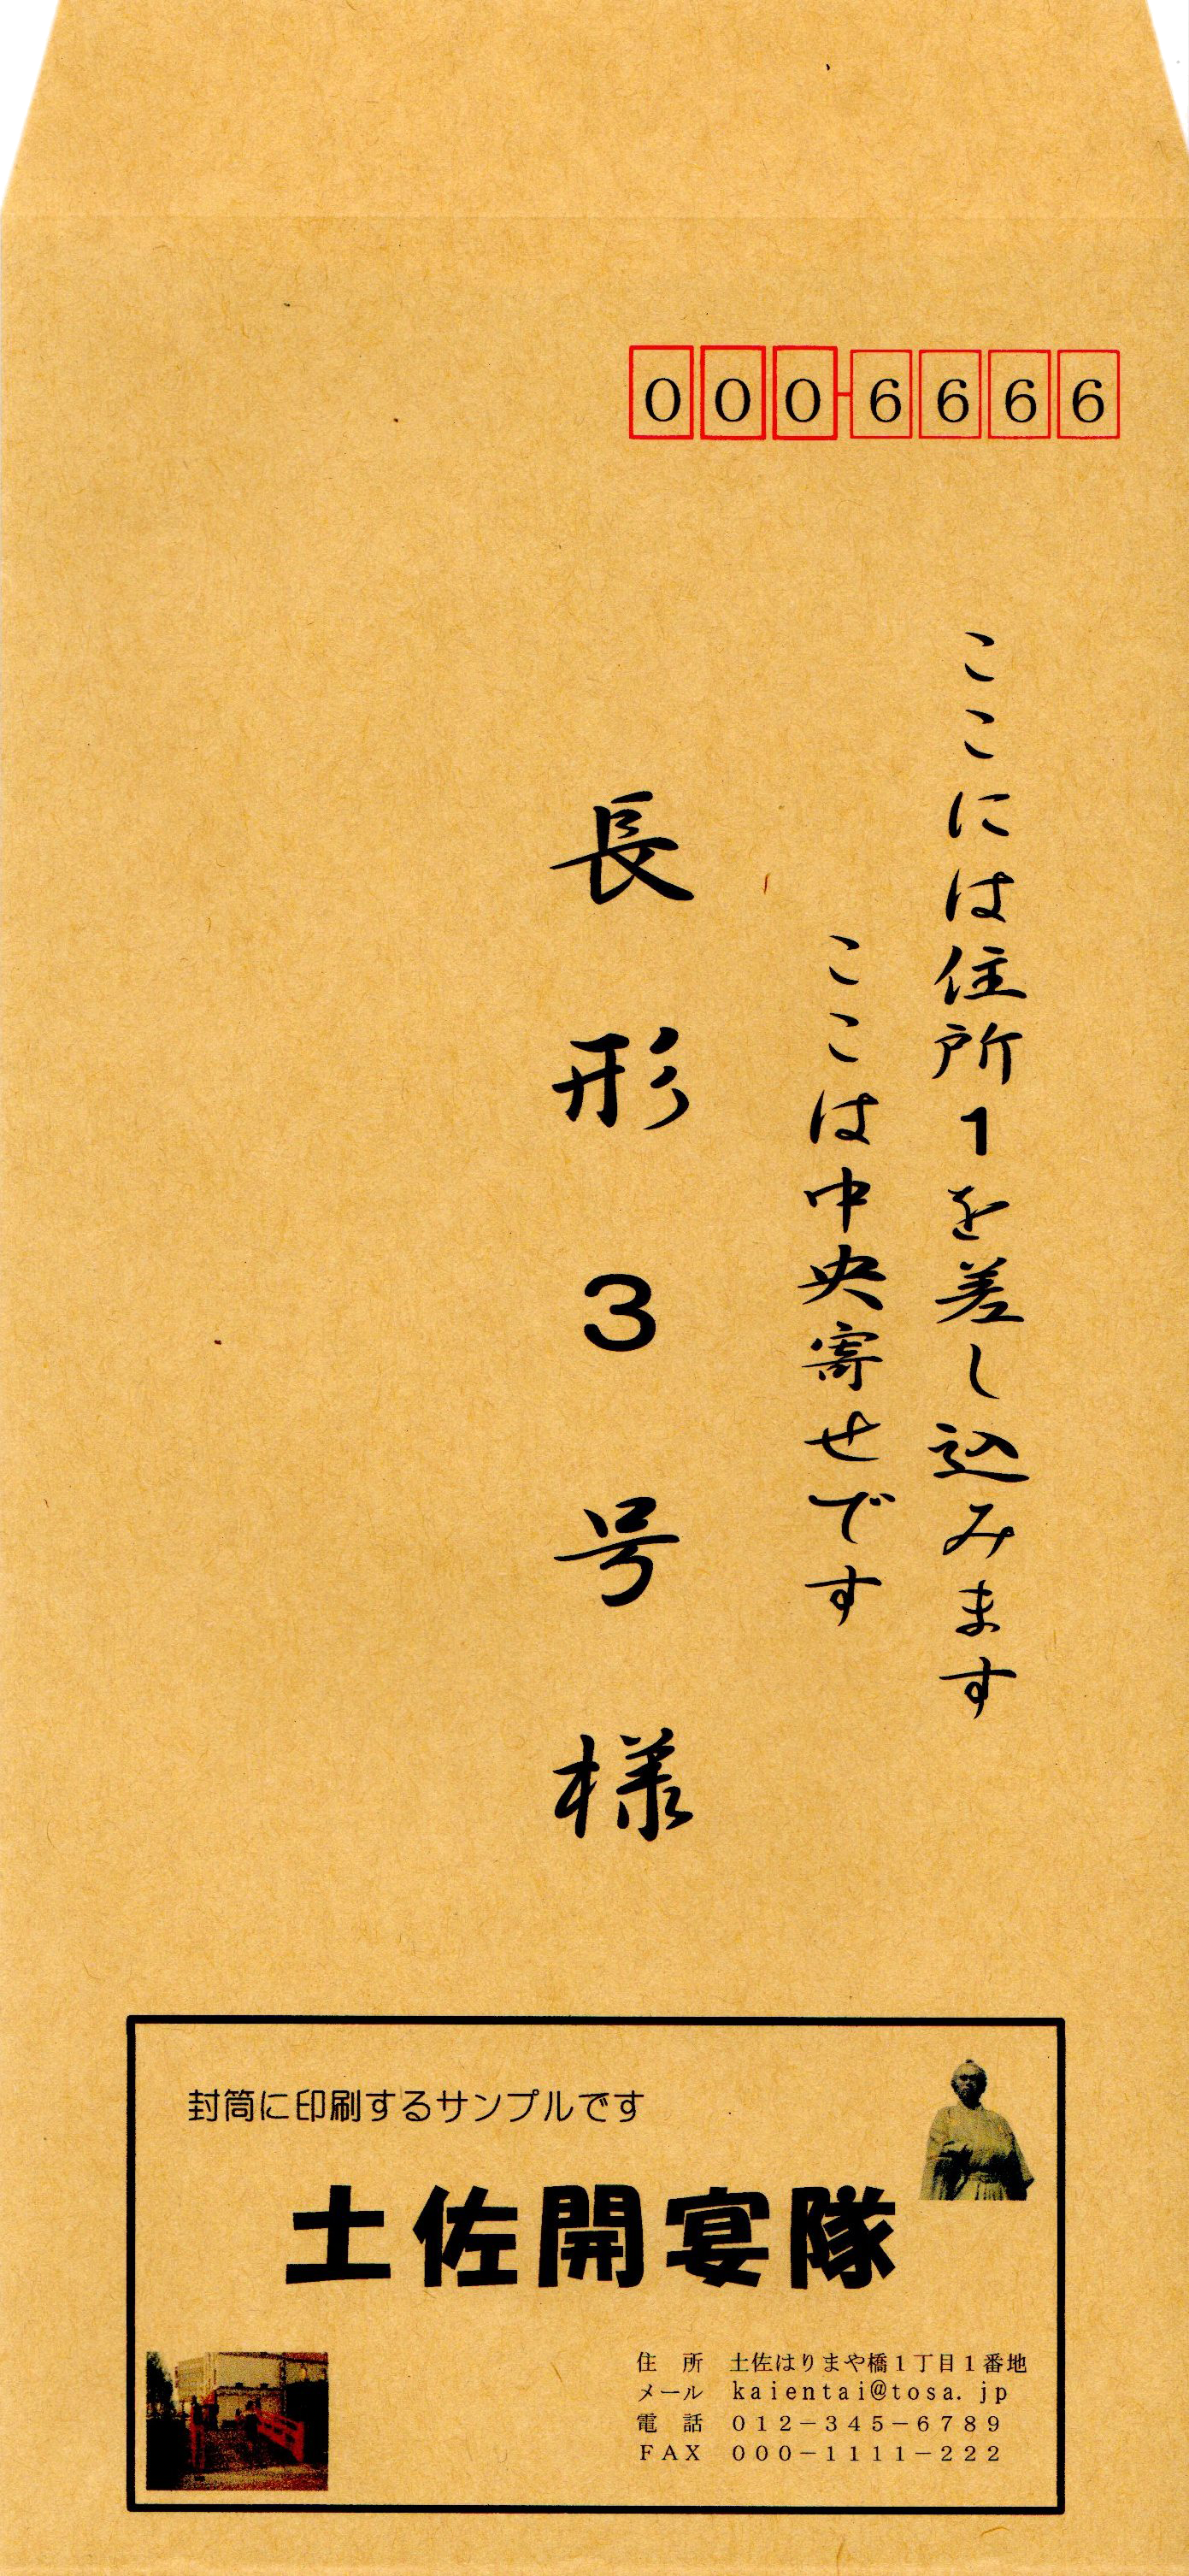 000-6666
ここには住所1を差し込みます
ここは中央寄せです
長形3号様
封筒に印刷するサンプルです
土佐開宴隊
住　所　土佐はりまや橋１丁目１番地
メール　kaientai@tosa.jp
電　話　０１２－３４５－６７８９
ＦＡＸ　０００－１１１１－２２２